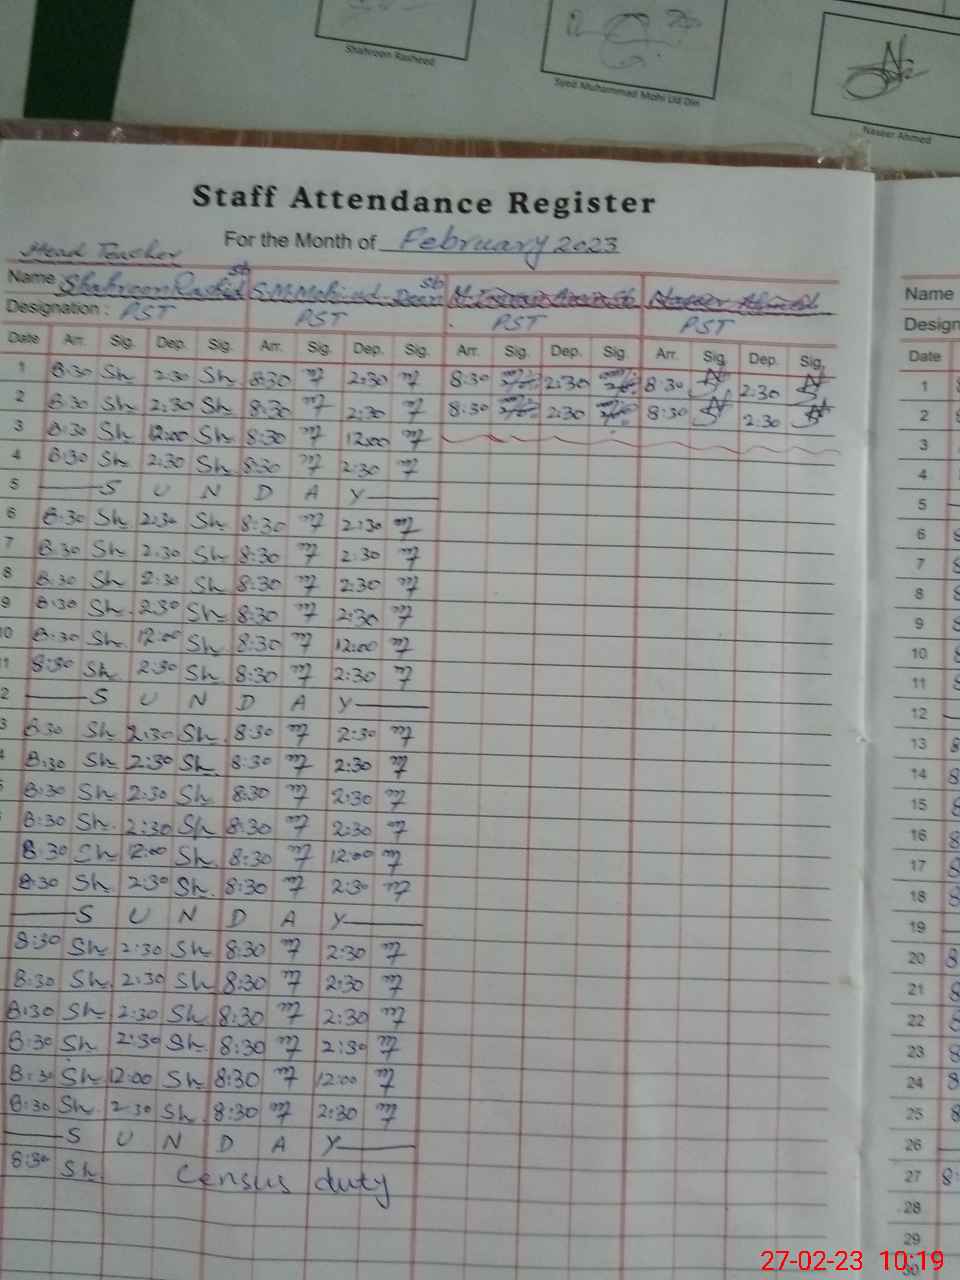 Shahroon Rasheed
Syed Muhammad Mohi Ud Din
Naseer Ahmed
Staff Attendance Register
For the Month of February 2023
Head Teacher
Name Shahroon Rashid S.M Mohi ud Deen Naseer Ahmed Name
Designation : PST PST PST PST Design
Date Arr. Sig. Dep. Sig. Arr. Sig. Dep. Sig. Arr. Sig. Dep. Sig. Arr. Sig. Dep. Sig. Date
1 8:30 Sh 2:30 Sh 8:30 2:30 8:30 2:30 8:30 2:30 1
2 8:30 Sh 2:30 Sh 8:30 2:30 8:30 2:30 8:30 2:30 2
3 8:30 Sh 12:00 Sh 8:30 12:00 3
4 8:30 Sh 2:30 Sh 8:30 2:30 4
5 S U N D A Y 5
6 8:30 Sh 2:30 Sh 8:30 2:30 6
7 8:30 Sh 2:30 Sh 8:30 2:30 7
8 8:30 Sh 2:30 Sh 8:30 2:30 8
9 8:30 Sh 2:30 Sh 8:30 2:30 9
10 8:30 Sh 12:00 Sh 8:30 12:00 10
11 8:30 Sh 2:30 Sh 8:30 2:30 11
2 S U N D A Y 12
3 8:30 Sh 2:30 Sh 8:30 2:30 13
8:30 Sh 2:30 Sh 8:30 2:30 14
8:30 Sh 2:30 Sh 8:30 2:30 15
8:30 Sh 2:30 Sh 8:30 2:30 16
8:30 Sh 12:00 Sh 8:30 12:00 17
8:30 Sh 2:30 Sh 8:30 2:30 18
S U N D A Y 19
8:30 Sh 2:30 Sh 8:30 2:30 20
8:30 Sh 2:30 Sh 8:30 2:30 21
8:30 Sh 2:30 Sh 8:30 2:30 22
8:30 Sh 2:30 Sh 8:30 2:30 23
8:30 Sh 12:00 Sh 8:30 12:00 24
8:30 Sh 2:30 Sh 8:30 2:30 25
S U N D A Y 26
8:30 Sh Census duty 27
28
29
30
27-02-23 10:19